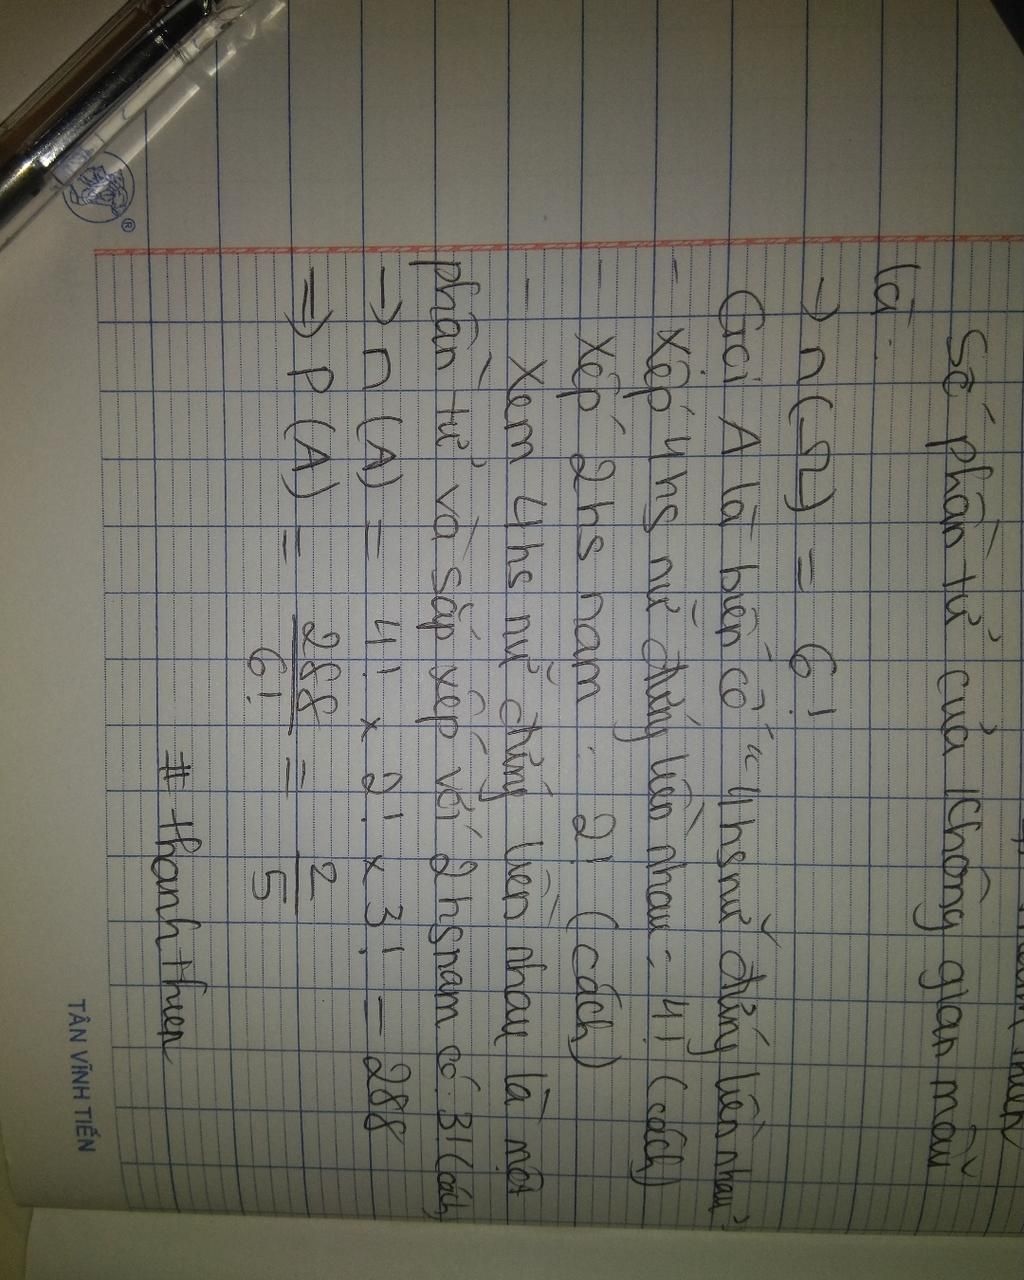 Số phần tử của không gian mẫu
là:
→ n(Ω) = 6!
Gọi A là biến cố "4hs nữ đứng liền nhau"
- xếp 4hs nữ đứng liền nhau: 4! (cách)
- xếp 2hs nam : 2! (cách)
- Xem 4hs nữ đứng liền nhau là một
phần tử và sắp xếp với 2hs nam có: 3! (cách)
→ n (A) = 4! x 2! x 3! = 288
=> P (A) = 288/6! = 2/5
# thanh thien
TÂN VĨNH TIẾN
®